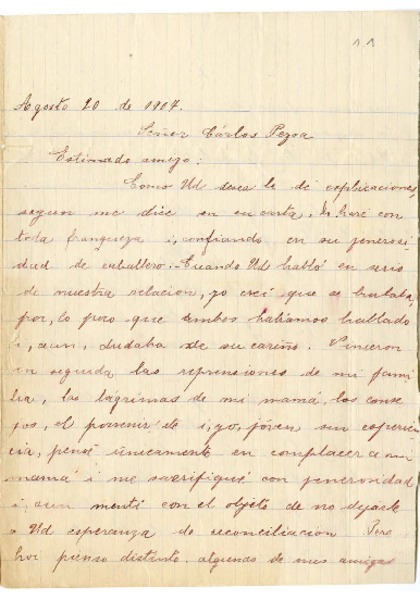 Agosto 20 de 1907.
Señor Cárlos Pezoa
Estimado amigo:
Como Ud desea le dé esplicaciones,
segun me dice en su carta, lo haré con
toda franqueza i, confiando en su jenerosi
dad de caballero. Cuando Ud habló en serio
de nuestra relacion, yo creí que se burlaba,
por, lo poco que ambos habíamos hablado
i, aun, dudaba de su cariño. Vinieron
en seguida las reprensiones de mi fami
lia, las lágrimas de mi mamá, los conse
jos, el porvenir &
i, yo, jóven sin esperien
cia, pensé únicamente en complacer a mi
mamá i me sacrifiqué con jenerosidad
i, aun mentí con el objeto de no dejarle
a Ud esperanza de reconciliacion Pero
hoi pienso distinto. algunas de mis amigas